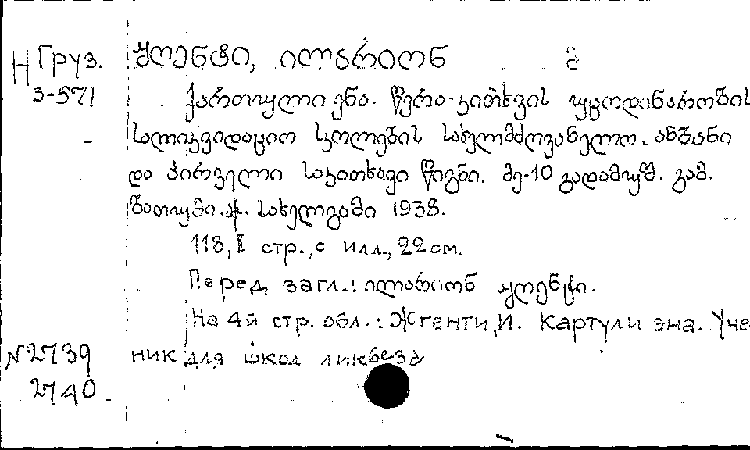 Н Груз. ჟღენტი, ილარიონ
3-571 ქართული ენა. წერა-კითხვის უცოდინარობის
სალიკვიდაციო სკოლების სახელმძღვანელო. ანბანი
და პირველი საკითხავი წიგნი. მე-10 გადამუშ. გამ.
ბათუმი. სახელგამი 1938.
118, II стр., с илл., 22 см.
Перед загл.: ილარიონ ჟღენტი.
На 4й стр. обл.: Жгенти, И. Картули эна. Учеб
№ 2739 ник для школ ликбеза
2740.